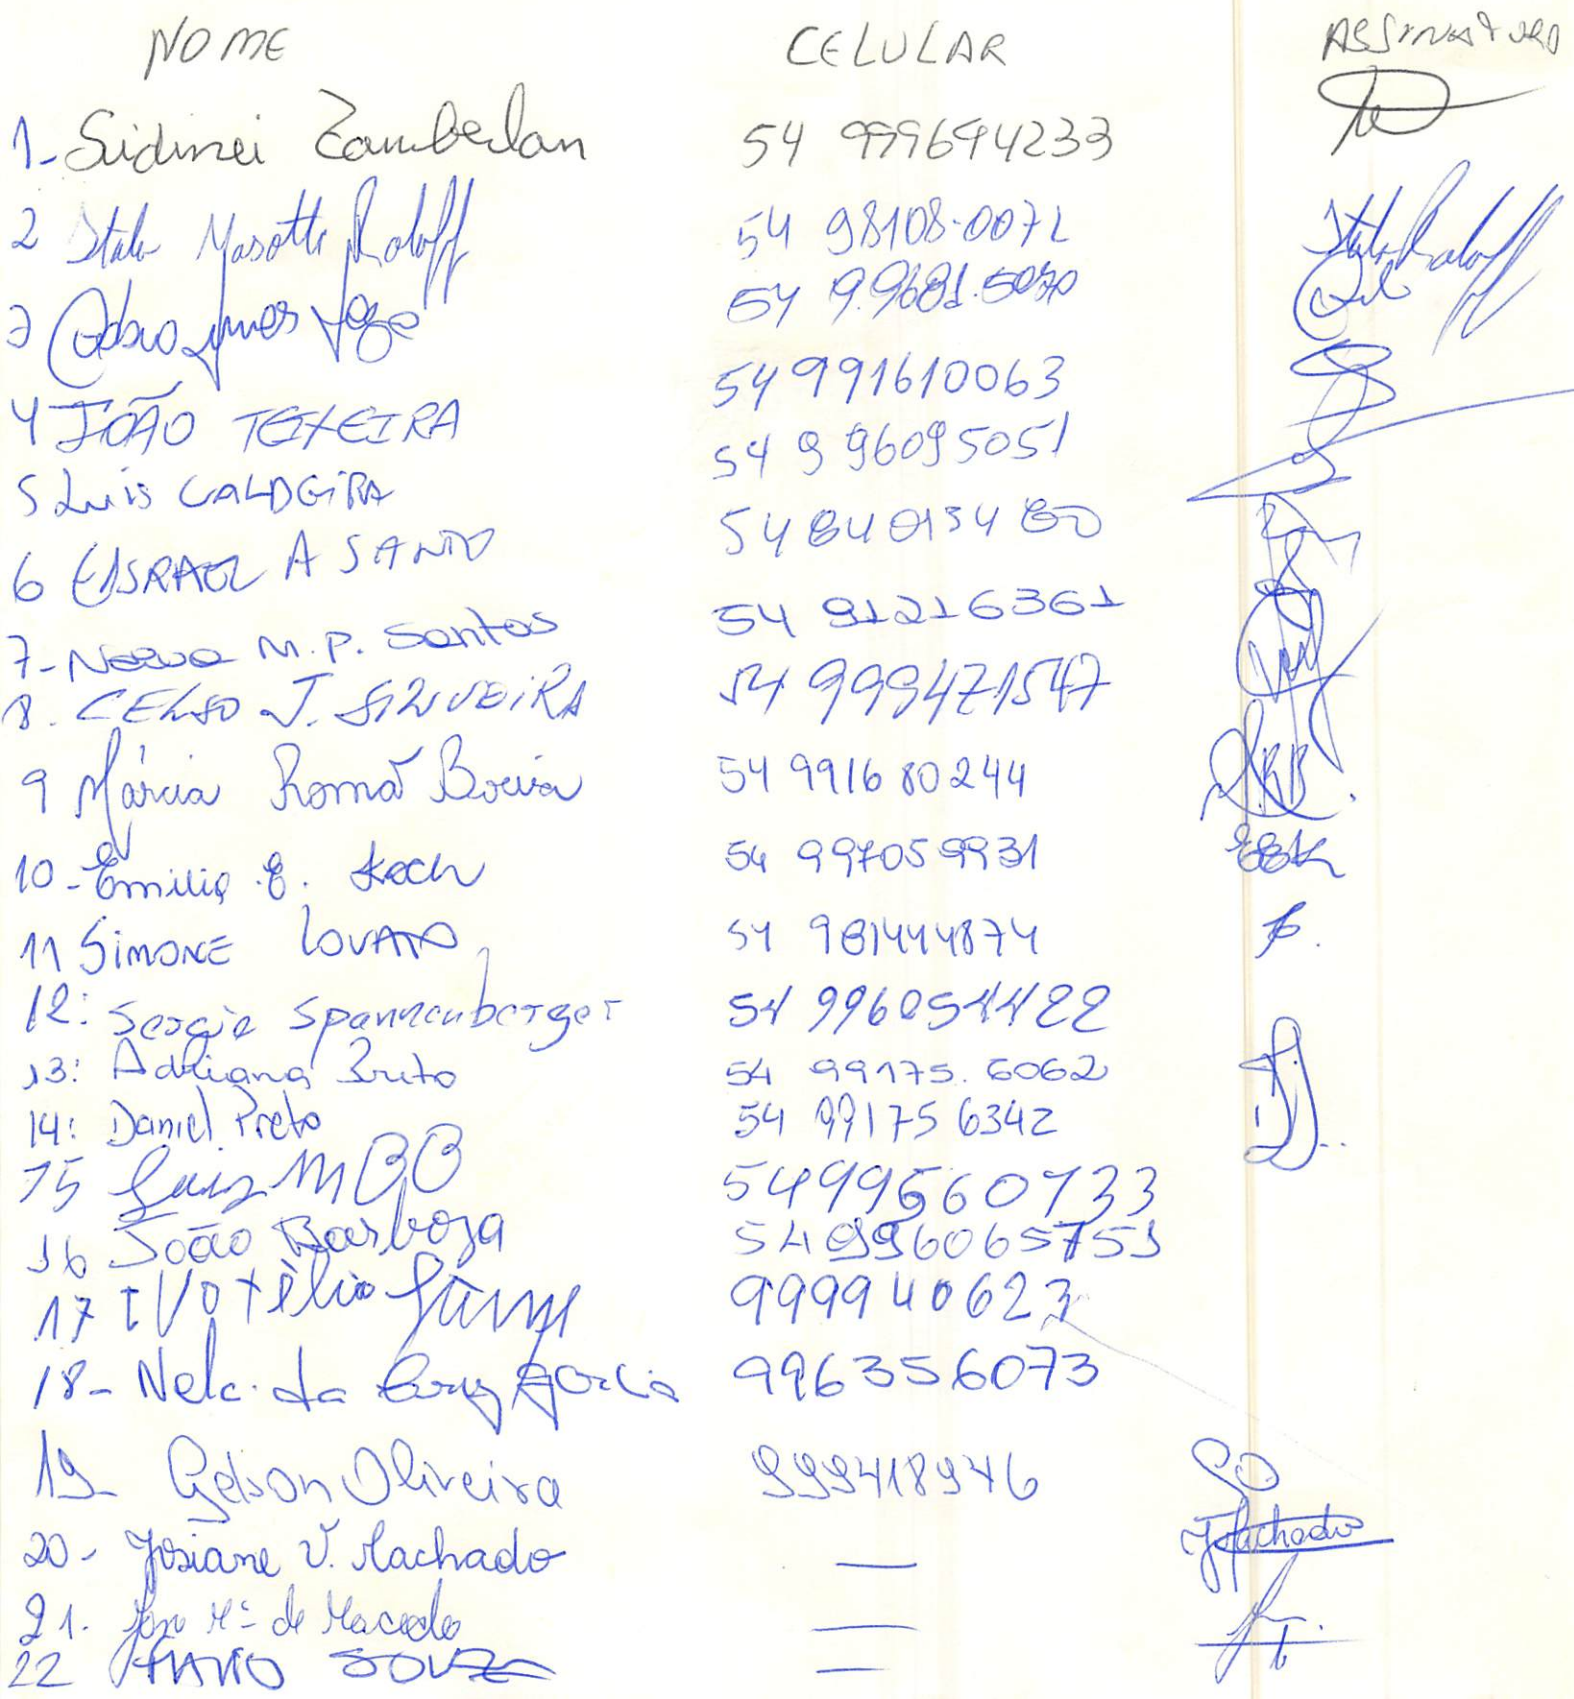 NOME CELULAR ASSINATURA
1- Sidinei Zamberlan 54 999694233
2 Italo Masotti Roloff 54 98108-0072 Italo Roloff
3 54 9.9681.5070
4 JOÃO TEIXEIRA 54 991610063
5 Luis CALDEIRA 54 9 96095051
6 A SANTO 54
7- M. P. Santos 54 91216361
8. CELSO J. SILVEIRA 54 999471547
9 Márcia Romã 54 991680244
10- Emilio E. Koch 54 997059931 EEK
11 SIMONE LOVATO 54 981444874
12: Sergio Spannenberger 54 996054422
13: Adriana Brito 54 99175.6062
14: Daniel Preto 54 991756342
15 Luiz MBB 54999560733
16 João Barboza 54996065751
17 IVO 999940623
18- da Cruz 996356073
19- Gelson Oliveira 999418946 GO
20- Josiane V. Machado — JMachado
21. Mª de Macedo —
22 SOUZA —